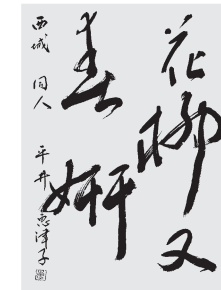 花柳又
春妍
西城 同人 平井恵津子